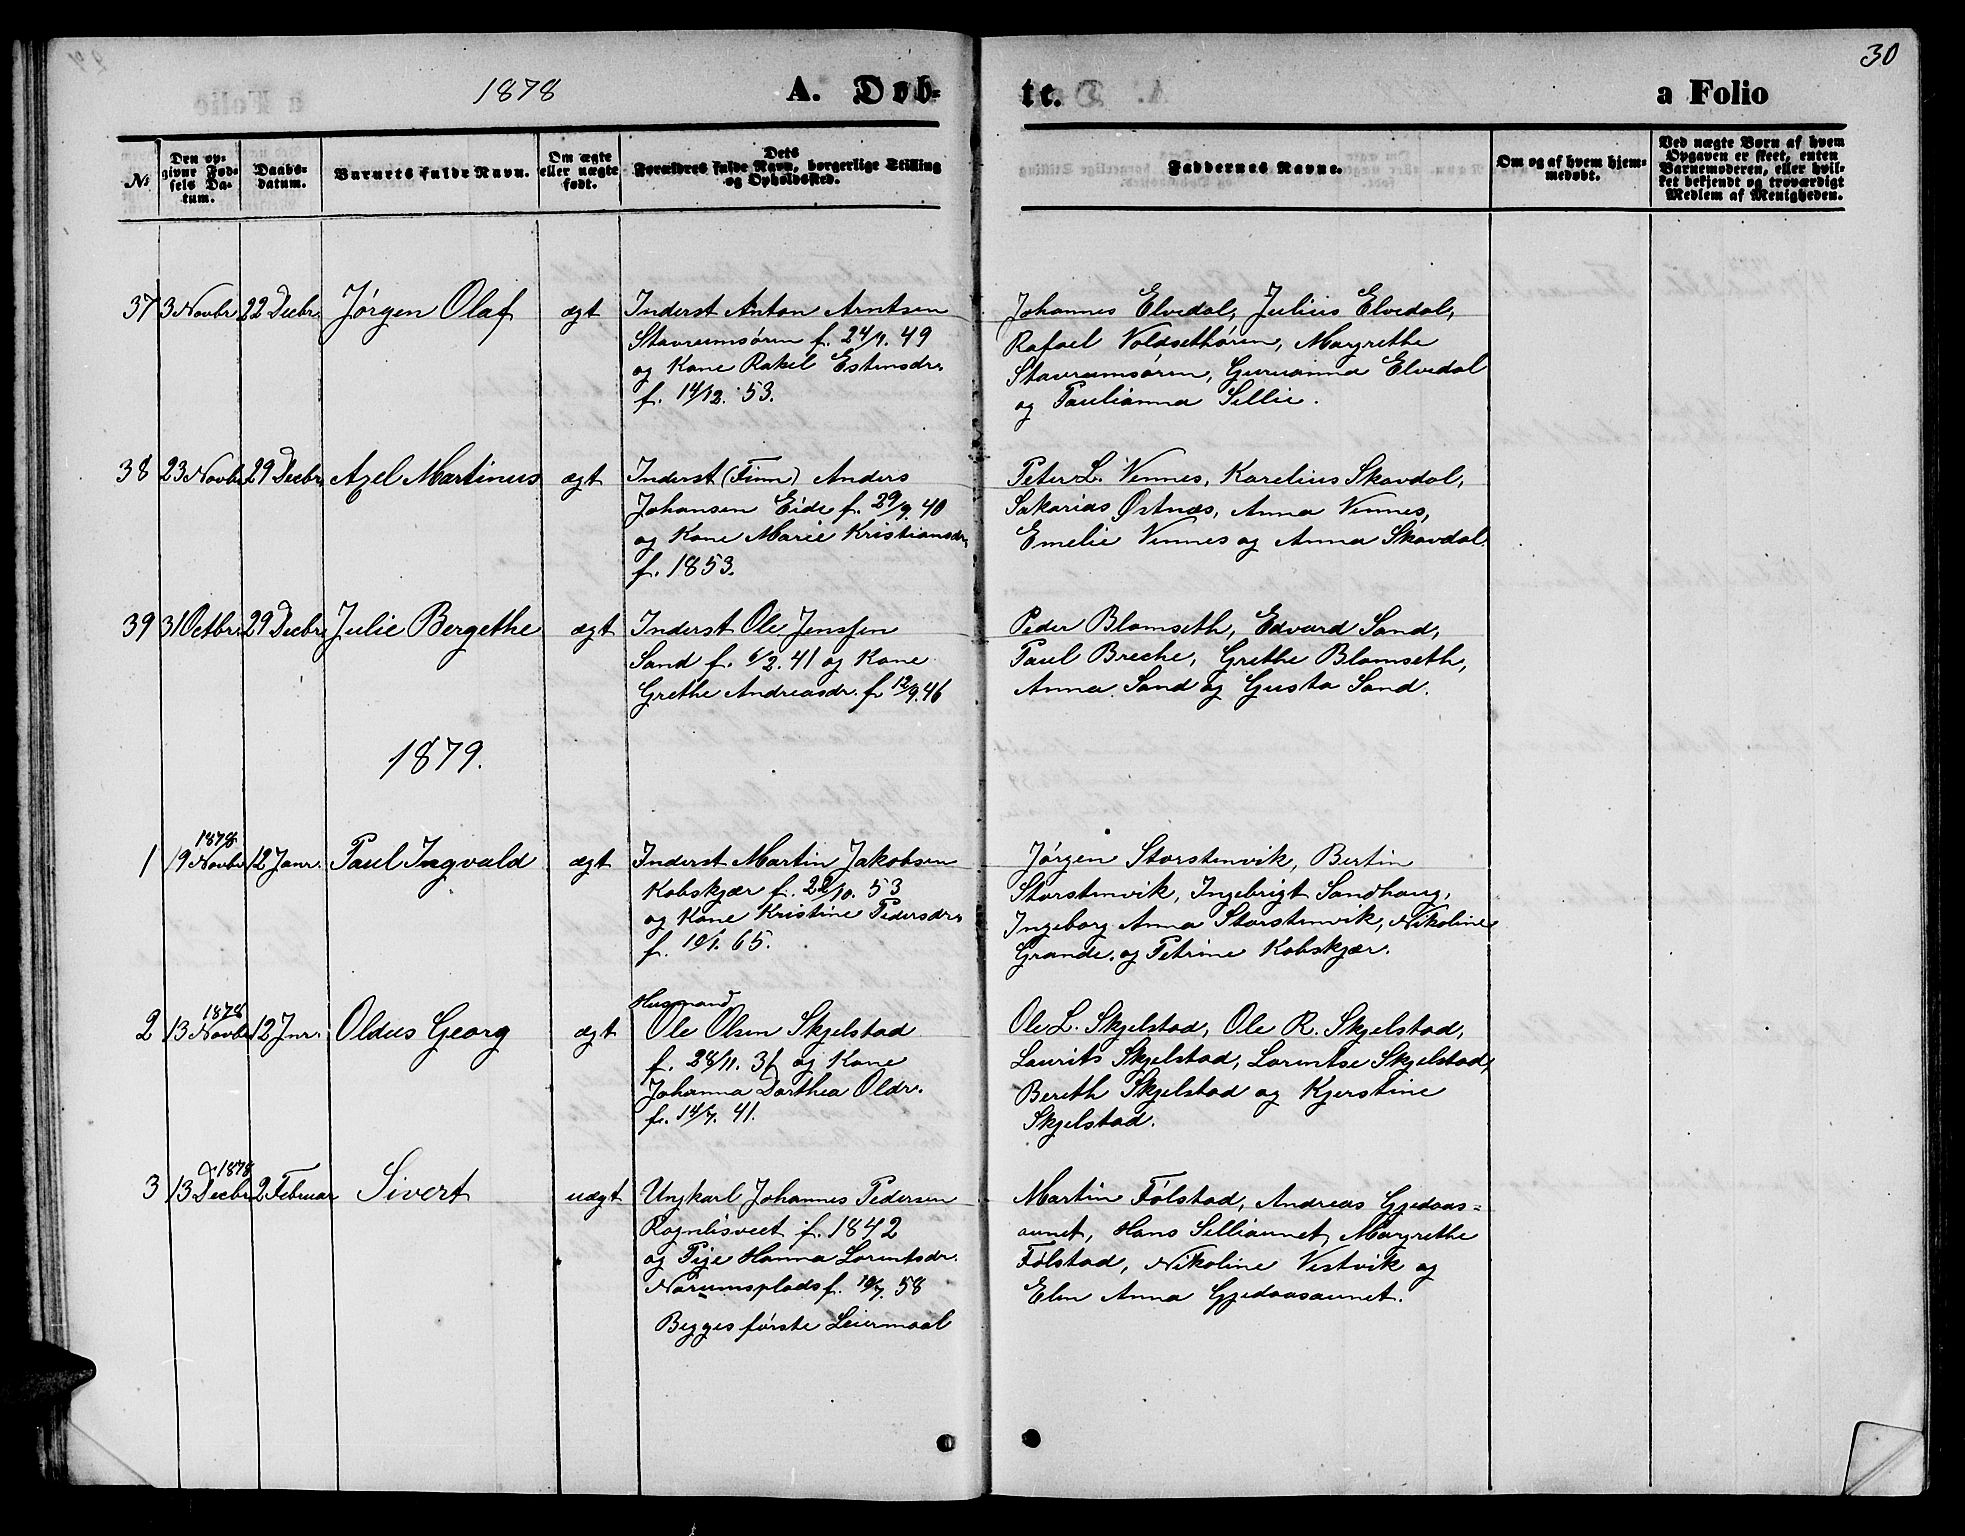 30
1878 A. Døb- te. a Folio
№ Den opgivne Fødsels Datum. Daabsdatum. Barnets fulde Navn. Om ægte eller uægte født. Dets Forældres fulde Navn, borgerlige Stilling og Opholdssted. Faddernes Navne. Om og af hvem hjemmedøbt. Ved uægte Børn af hvem Opgaven er skeet, enten Barnemoderen, eller hvilket bekjendt og troværdigt Medlem af Menigheden.
37 3 Novbr 22 Decbr. Jørgen Olaf ægt Inderst Anton Arntsen
Stavrumsøren f. 24/9. 49
og Kone Rakel Estensdr.
f. 14/12. 53.
Johannes Elvedal, Julius Elvedal,
Rafael Voldsethøren, Margrethe
Stavrumsøren, Guruanna Elvedal
og Paulianna Sellie.
38 23 Novbr 29 Decbr. Axel Martinus ægt Inderst (Finn) Anders
Johansen Eide f. 29/9. 40
og Kone Marie Kristiansdr.
f. 1853.
Peter L. Vennes, Karelius Skavdal,
Sakarias Østnæs, Anna Vennes,
Emelie Vennes og Anna Skavdal.
39 31 Octbr. 29 Decbr. Julie Bergethe ægt Inderst Ole Jenssen
Sand f. 6/2. 41 og Kone
Grethe Andreasdr. f. 12/9. 46
Peder Blomseth, Edvard Sand,
Paul Breche, Grethe Blomseth,
Anna Sand og Gusta Sand.
1879.
1878
1 19 Novbr 12 Janr. Paul Ingvald ægt Inderst Martin Jakobsen
Kobskjær f. 22/10. 53
og Kone Kristine Pedersdr.
f. 10/1. 65.
Jørgen Storstenvik, Bertin
Storstenvik, Ingebrigt Sandhaug,
Ingeborg Anna Storstenvik, Nikoline
Grande og Petrine Kobskjær.
1878
2 13 Novbr 12 Jnr. Oldus Georg ægt Husmand
Ole Olsen Skjelstad
f. 28/11. 31 og Kone
Johanna Dorthea Oldr.
f. 14/7. 41.
Ole L. Skjelstad, Ole R. Skjelstad,
Laurits Skjelstad, Lorentse Skjelstad,
Bereth Skjelstad og Kjerstine
Skjelstad.
1878
3 13 Decbr 2 Februar Sivert uægt Ungkarl Johannes Pedersen
Rognlisveet f. 1842
og Pige Hanna Lorentsdr.
Narumsplads f. 10/7. 58
Begges første Leiermaal
Martin Følstad, Andreas Gjedaas=
aunet, Hans Selliaunet, Margrethe
Følstad, Nikoline Vestvik og
Elen Anna Gjedaasaunet.